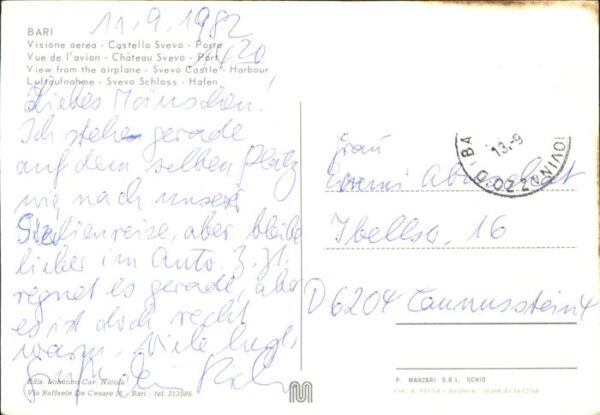 BARI
11.9.1982
Visione aerea - Castello Svevo - Porto
Vue de l'avion - Château Svevo - Port
View from the airplane - Svevo Castle - Harbour
Luftaufnahme - Svevo Schloss - Hafen
Liebes Mäuschen!
Ich stehe gerade
auf dem selben Platz
wie nach unserer
Sizilienreize, aber bleibe
lieber im Auto. Z. Zt.
regnet es gerade, aber
es ist doch recht
warm. Viele
dein
Via Raffaele De Cesare 15 - Bari - tel. 213986
13.-9
GIOVINAZZO
Frau
Ibellstr. 16
D 6204 Taunusstein 4
P. MARZARI S.R.L. SCHIO